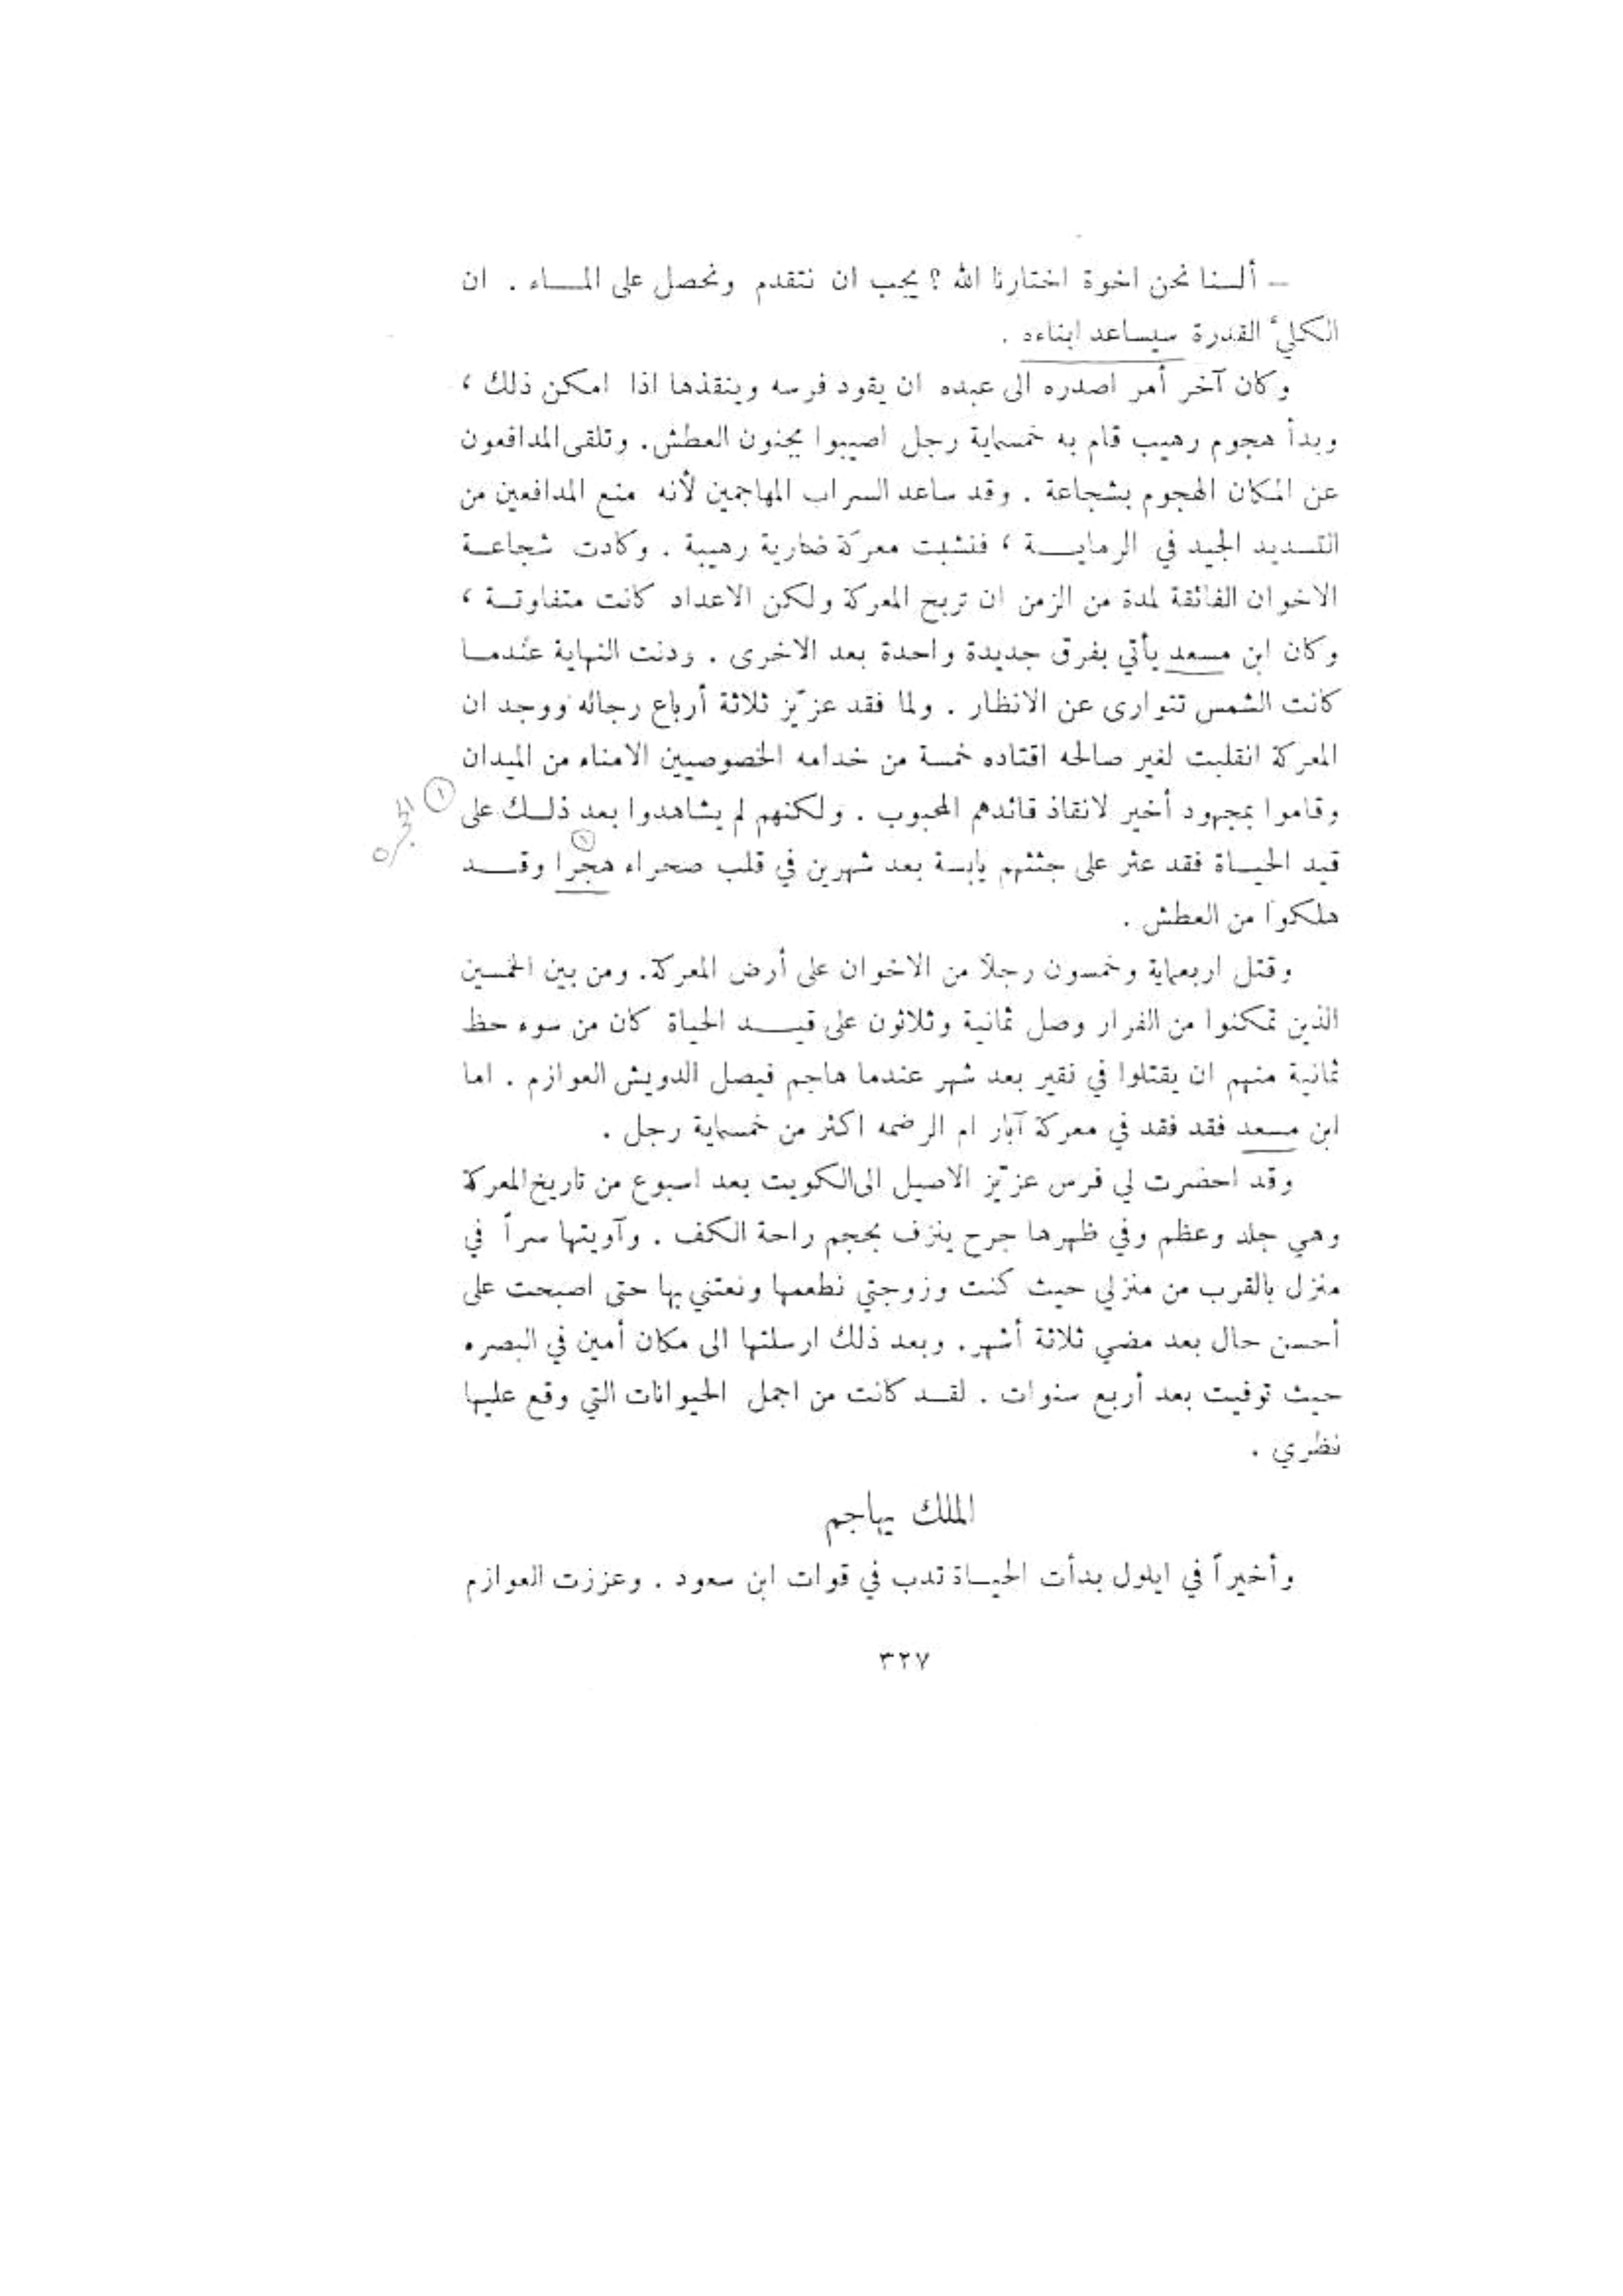 – ألسنا نحن اخوة اختارنا الله ؟ يجب ان نتقدم ونحصل على المـــاء . ان
الكليّ القدرة سيساعد ابناءه .
وكان آخر أمر اصدره الى عبده ان يقود فرسه وينقذها اذا امكن ذلك ،
وبدأ هجوم رهيب قام به خمسماية رجل اصيبوا بجنون العطش . وتلقى المدافعون
عن المكان الهجوم بشجاعة . وقد ساعد السراب المهاجمين لأنه منع المدافعين من
التسديد الجيد في الرمايـــة ، فنشبت معركة ضارية رهيبة . وكادت شجاعـة
الاخوان الفائقة لمدة من الزمن ان تربح المعركة ولكن الاعداد كانت متفاوتـة ،
وكان ابن مسعد يأتي بفرق جديدة واحدة بعد الاخرى . ودنت النهاية عندمـا
كانت الشمس تتوارى عن الانظار . ولما فقد عزيّز ثلاثة أرباع رجاله ووجد ان
المعركة انقلبت لغير صالحه اقتاده خمسة من خدامه الخصوصيين الامناء من الميدان
وقاموا بمجهود أخير لانقاذ قائدهم المحبوب . ولكنهم لم يشاهدوا بعد ذلـك على
① الحجره
①
قيد الحيـاة فقد عثر على جثثهم يابسة بعد شهرين في قلب صحراء هجرا وقـــد
هلكوا من العطش .
وقتل اربعماية وخمسون رجلا من الاخوان على أرض المعركة . ومن بين الخمسين
الذين تمكنوا من الفرار وصل ثمانية وثلاثون على قيـــد الحياة كان من سوء حظ
ثمانية منهم ان يقتلوا في نقير بعد شهر عندما هاجم فيصل الدويش العوازم . اما
ابن مسعد فقد فقد في معركة آبار ام الرضمه اكثر من خمسماية رجل .
وقد احضرت لي فرس عزيّز الاصيل الى الكويت بعد اسبوع من تاريخ المعركة
وهي جلد وعظم وفي ظهرها جرح ينزف بحجم راحة الكف . وآويتها سراً في
منزل بالقرب من منزلي حيث كنت وزوجتي نطعمها ونعتني بها حتى اصبحت على
أحسن حال بعد مضي ثلاثة أشهر . وبعد ذلك ارسلتها الى مكان أمين في البصره
حيث توفيت بعد أربع سنوات . لقـد كانت من اجمل الحيوانات التي وقع عليها
نظري .
الملك يهاجم
وأخيراً في ايلول بدأت الحيـاة تدب في قوات ابن سعود . وعززت العوازم
٣٢٧